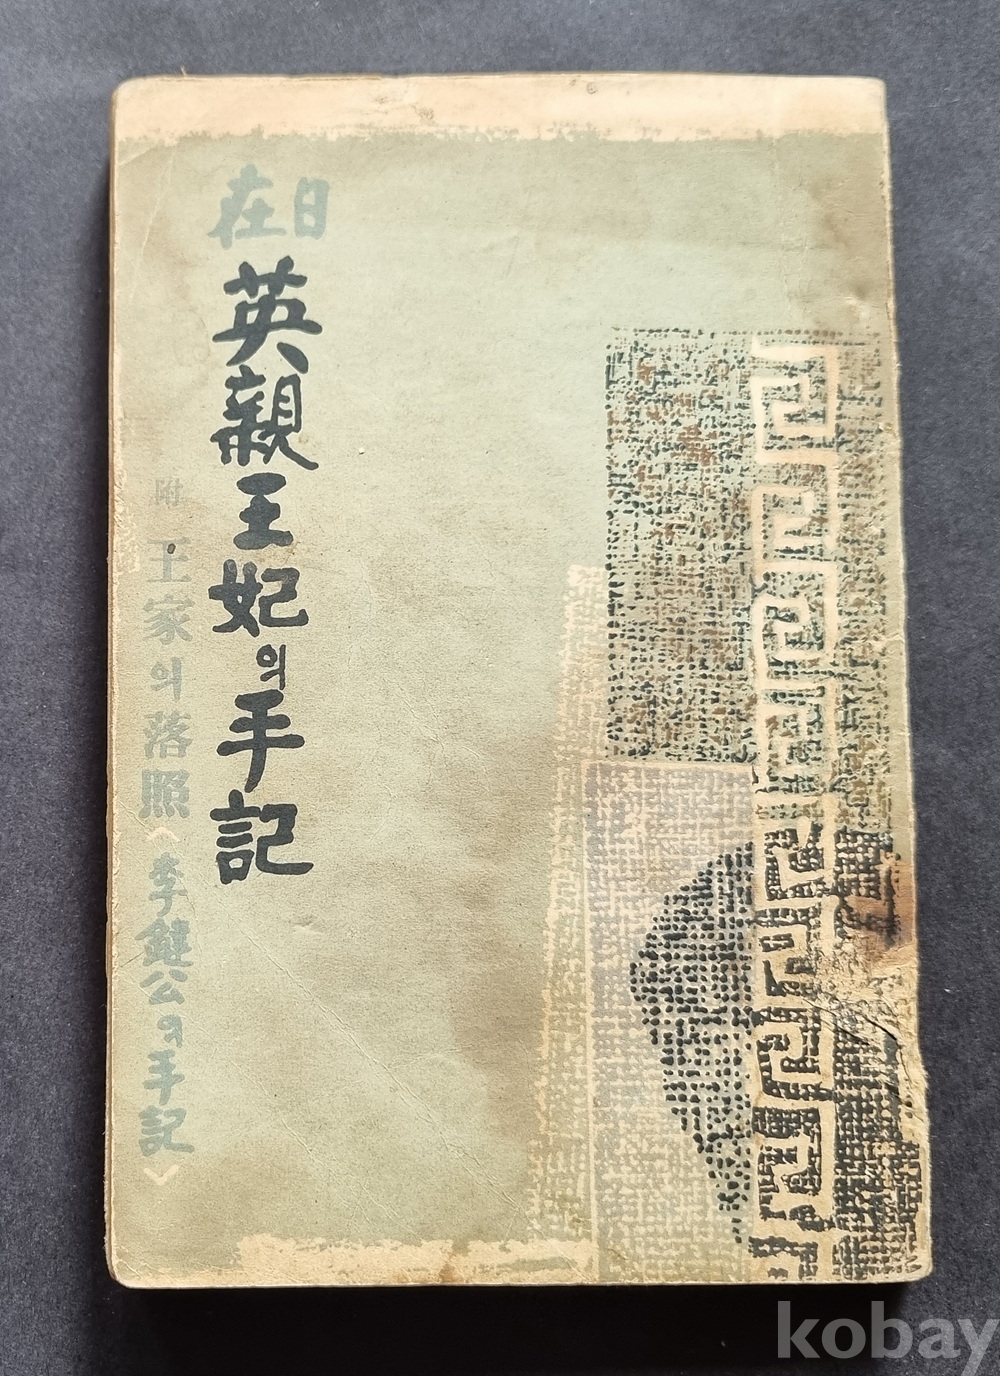 在日
英親王妃의手記
附 王家의落照《李鍵公의手記》
kobay